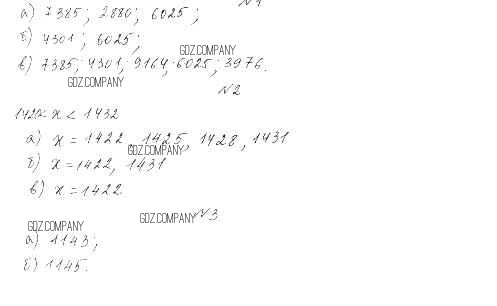 №1
а) 7385; 2880; 6025;
б) 4301; 6025;
GDZ.COMPANY
в) 7385; 4301; 9164; 6025; 3976.
GDZ.COMPANY
№2
1420< x < 1432
а) x = 1422, 1425, 1428, 1431
GDZ.COMPANY
б) x = 1422, 1431
в) x = 1422
GDZ.COMPANY GDZ.COMPANY №3
а) 1143;
б) 1145.